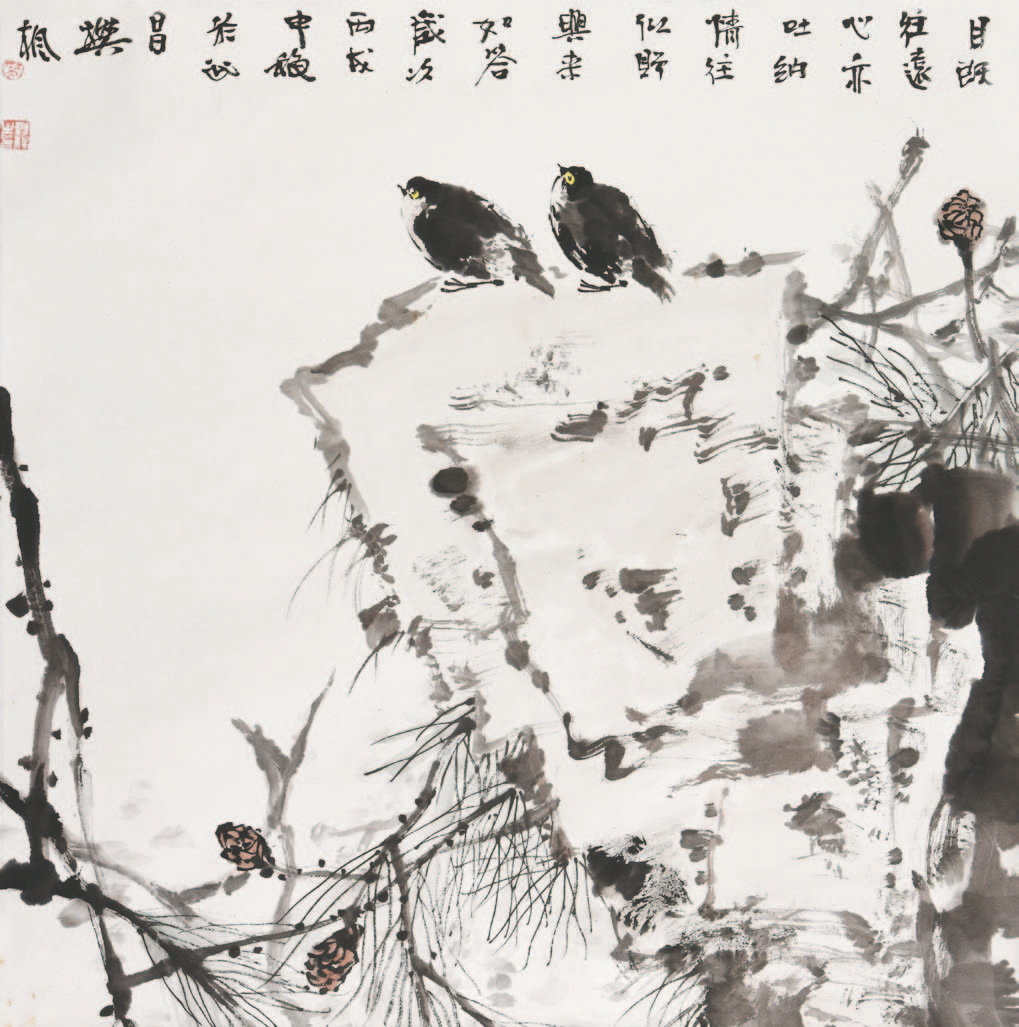 目既
往還
心亦
吐納
情往
似贈
興来
如答
歲次
丙戌
中穐
於武
昌
撰
楓